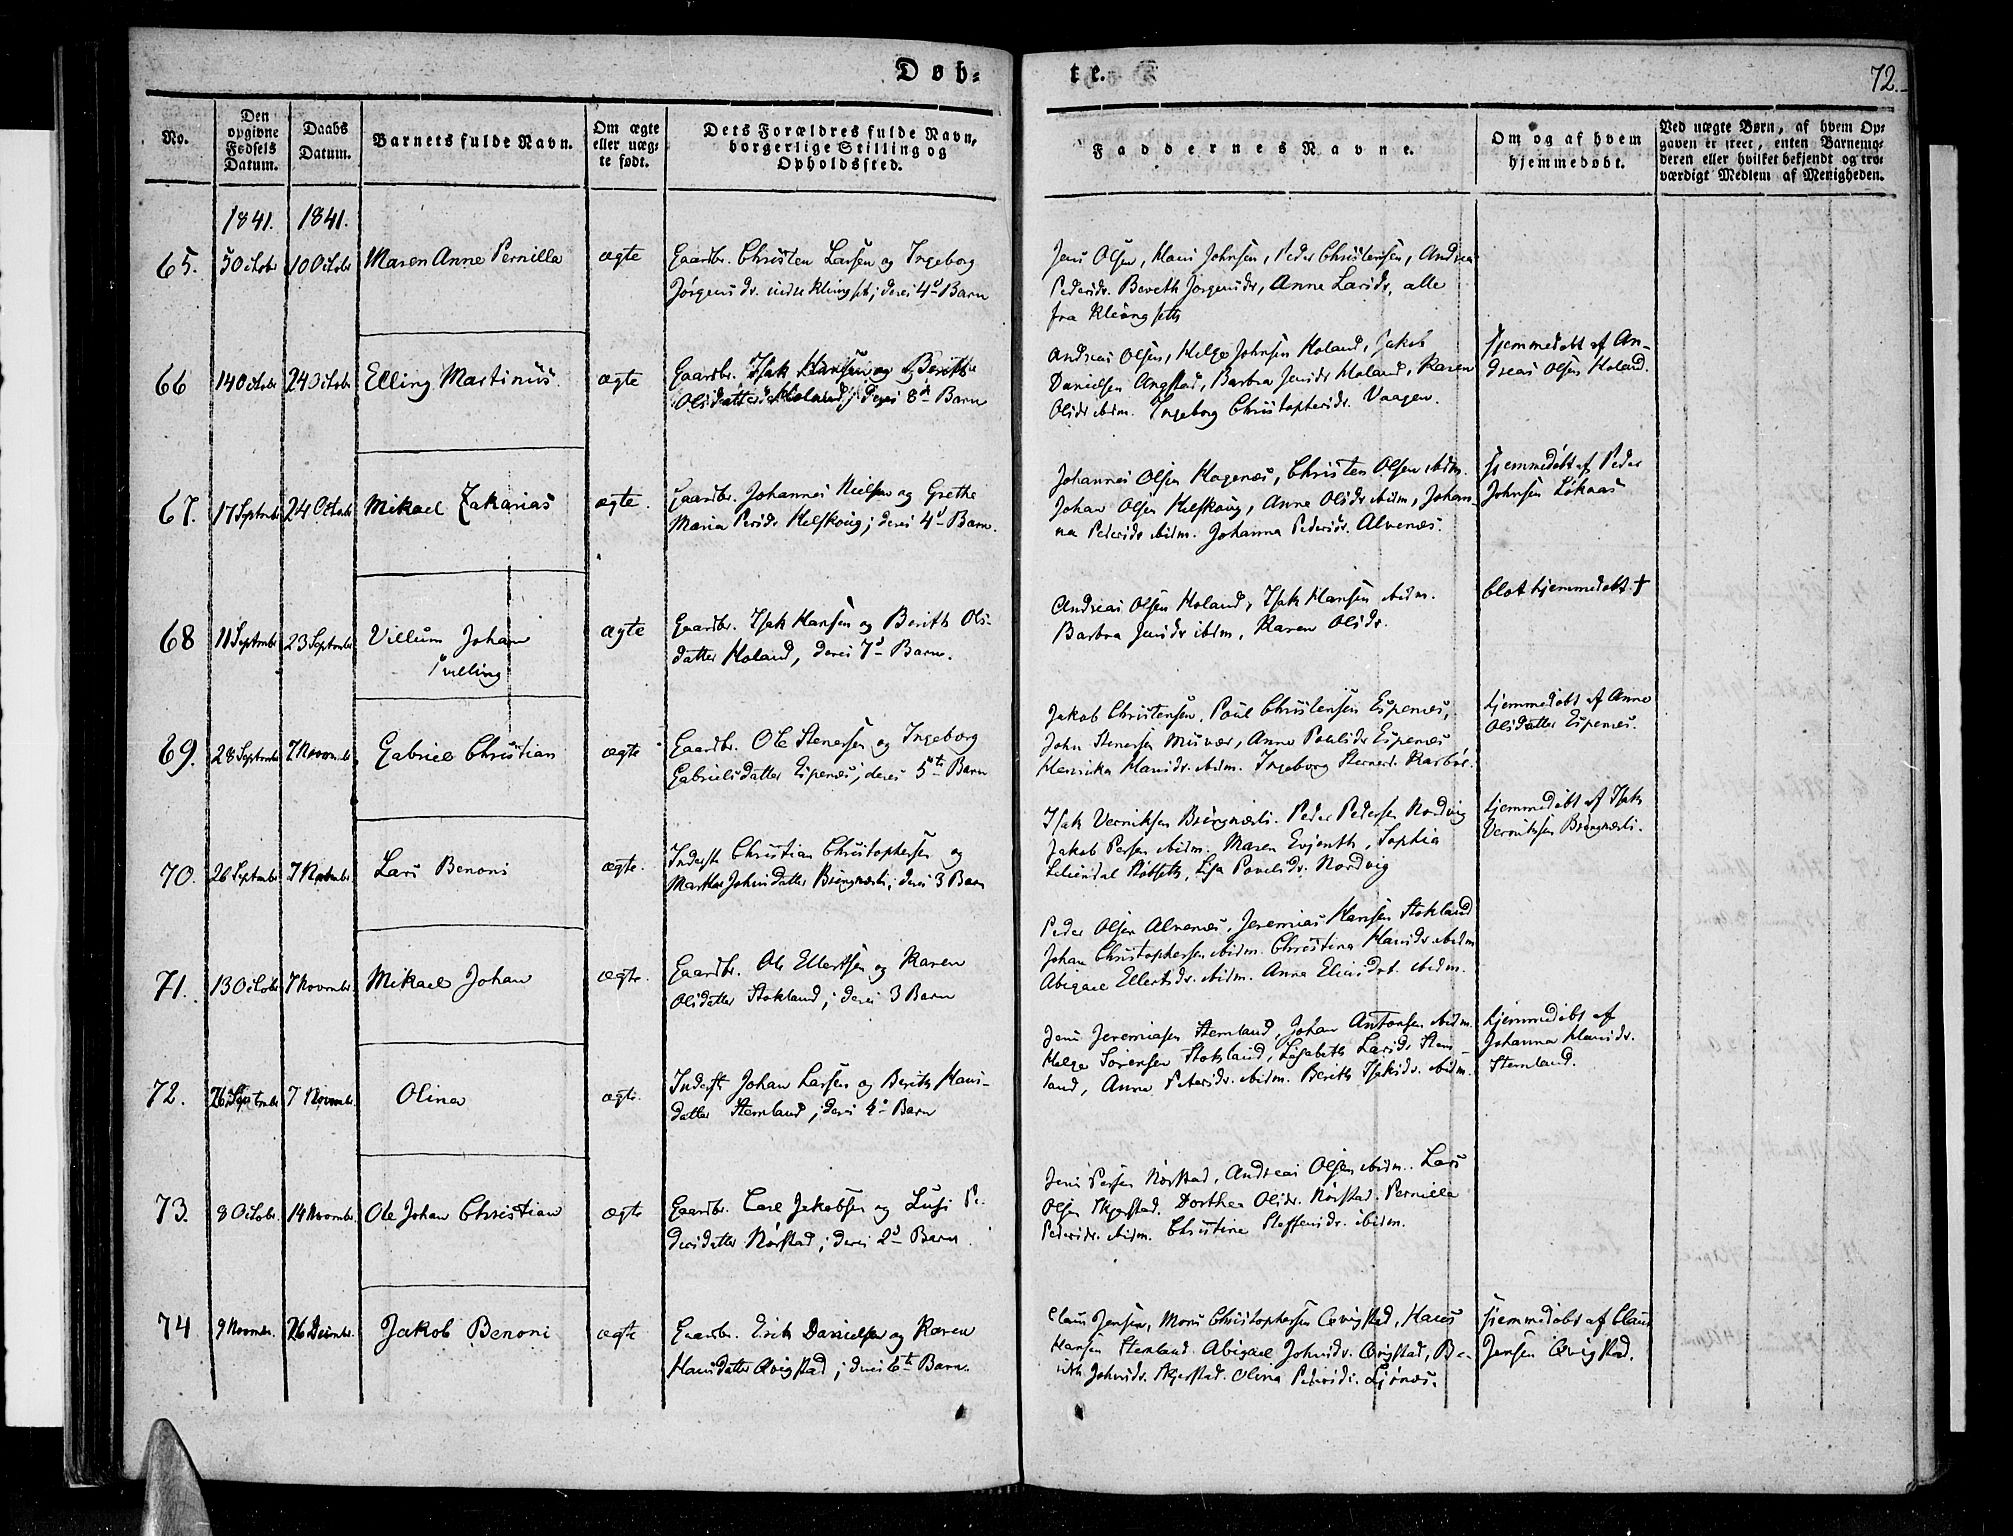 Døb-
te.
72.
No.
Den opgivne Fødsels Datum.
Daabs Datum.
Barnets fulde Navn.
Om ægte eller uægte født.
Dets Forældres fulde Navn, borgerlige Stilling og Opholdssted.
Faddernes Navne.
Om og af hvem hjemmedøbt.
Ved uægte Børn, af hvem Opgaven er skeet, enten Barnemoderen eller hvilket bekjendt og troværdigt Medlem af Menigheden.
1841. 1841.
65. 5 October 10 October Maren Anne Pernilla ægte Gaardbr. Christen Larsen og Ingeborg
Jørgensdr. Klungset; deres 4d Barn
Jens Olsen, Hans Johnsen, Peder Christensen, Andrea
Pedersdr. Bereth Jørgensdr, Anne Larsdr, alle
fra Klungseth
66 14 October 24 October Elling Martinus. ægte Gaardbr. Isak Hansen og Berith
Olsdatter Holand; deres 8d Barn
Andreas Olsen, Helge Johnsen Holand, Jakob
Danielsen Angstad, Barbra Jensdr Holand, Karen
Olsdr ibidm. Ingeborg Christophersdr. Vaagen.
Hjemmedøbt af An-
dreas Olsen Holand.
67. 17 Septmber 24 October Mikael Zakarias ægte. Gaardbr. Johannes Nielsen og Grethe
Maria Persdr Helskoug; deres 4d Barn.
Johannes Olsen Hagenæs, Christen Olsen ibidm.
Johan Olsen Helskoug, Anne Olsdr ibidm, Johan-
na Pedersdr ibidm. Johanna Pedersdr. Alvenæs.
Hjemmedøbt af Peder
Johnsen Løkaas
68 11 Septmber 23 Septmber Villum Johan
Tvilling
ægte Gaardbr. Isak Hansen og Berith Ols-
datter Holand, deres 7d Barn.
Andreas Olsen Holand, Isak Hansen ibidm.
Barbra Jensdr ibidm, Karen Olsdr.
blot hjemmedøbt †
69. 28 Septmber 7 Novembr. Gabriel Christian ægte Gaardbr. Ole Stenersen og Ingeborg
Gabrielsdatter Espenæs; deres 5te Barn
Jakob Christensen, Poul Christensen Espenæs,
John Stenersen Musvær, Anne Poulsdr Espenæs
Henrika Hansdr. ibidm. Ingeborg Stenersd. Karbøl.
hjemmedøbt af Anne
Olsdatter Espenæs.
70. 26 Septmber 7 Novbr. Lars Benoni ægte. Inderst Christian Christophersen og
Marthe Johnsdatter Brungnæsli; deres 3 Barn
Isak Verniksen Brungnæsli. Peder Pedersen Nordvig
Jakob Persen ibidm. Maren Evjenth, Sophia
Liliendal Stobseth, Lisa Povelsdr. Nordvig
hjemmedøbt af Isak
Verniksen Brungnæsli.
71. 13 October 7 Novembr. Mikael Johan ægte. Gaardbr. Ole Ellertsen og Karen
Olsdatter Stokland; deres 3 Barn
Peder Olsen Alvenæs, Jeremias Hansen Stokland
Johan Christophersen ibidm. Christina Hansdr ibidm
Abigael Ellertsdr. ibidm. Anna Eliasdr. ibidm.
72. 26 Septmber 7 Novembr. Olina ægte. Inderst Johan Larsen og Berith Hans-
datter Stemland; deres 4d Barn
Jens Jeremiasen Stemland, Johan Antonsen ibidm.
Helge Sørensen Stokland, Lisabeth Larsdr Stem-
land, Anne Petersdr. ibidm. Berith Isaksdr. ibidm.
hjemmedøbt af
Johanna Hansdr.
Stemland.
73. 8 October 14 Novembr. Ole Johan Christian ægte Gaardbr. Carl Jakobsen og Lusi Pe-
dersdatter Nørstad; deres 2d Barn.
Jens Persen Nørstad, Andreas Olsen ibidm. Lars
Olsen Skjerstad. Dorthea Olsdr. Nørstad. Pernilla
Pedersdr. ibidm. Christine Steffensdr. ibidm.
74 9 Novmbr. 26 Decmbr. Jakob Benoni ægte Gaardbr. Erik Danielsen og Karen
Hansdatter Qvigstad; deres 6te Barn.
Claus Jensen, Mons Christophersen Qvigstad, Hans
Hansen Stemland. Abigael Johnsdr. Qvigstad, Be-
rith Johnsdr. Skjerstad. Olina Pedersdr. Ljønæs.
hjemmedøbt af Claus
Jensen Qvigstad.